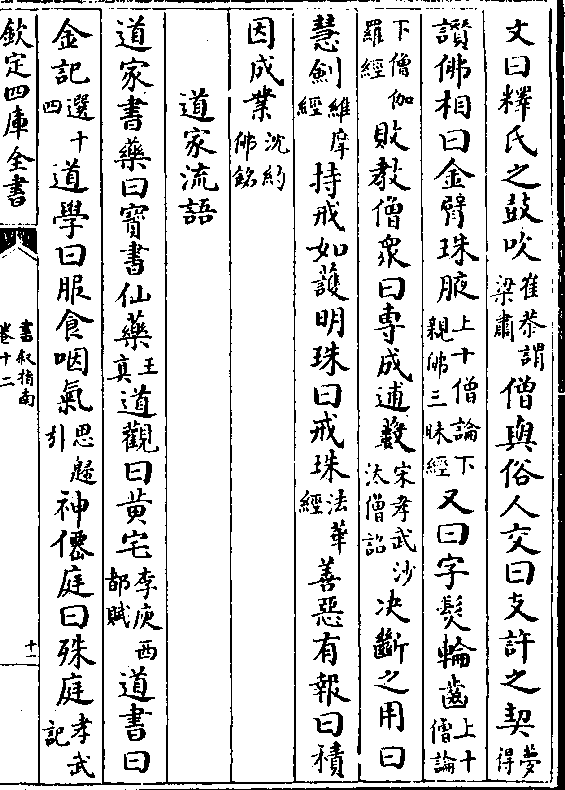 文曰釋氏之鼓吹崔恭謂梁肅僧與俗人交曰支許之契夢得
讚佛相曰金臂珠腋上十僧論下親佛三昧經又曰字髮輪齒上十僧論
下僧伽羅經敗教僧衆曰專成逋藪宋孝武沙汰僧詔決斷之用曰
慧劍維摩經持戒如護明珠曰戒珠法華經善惡有報曰積
因成業沈約佛銘
道家流語
道家書藥曰寶書仙藥王真道觀曰黄宅李庾西都賦道書曰
金記選十四道學曰服食咽氣思疑引神僊庭曰殊庭孝武記
欽定四庫全書
書叙指南
卷十二
十二